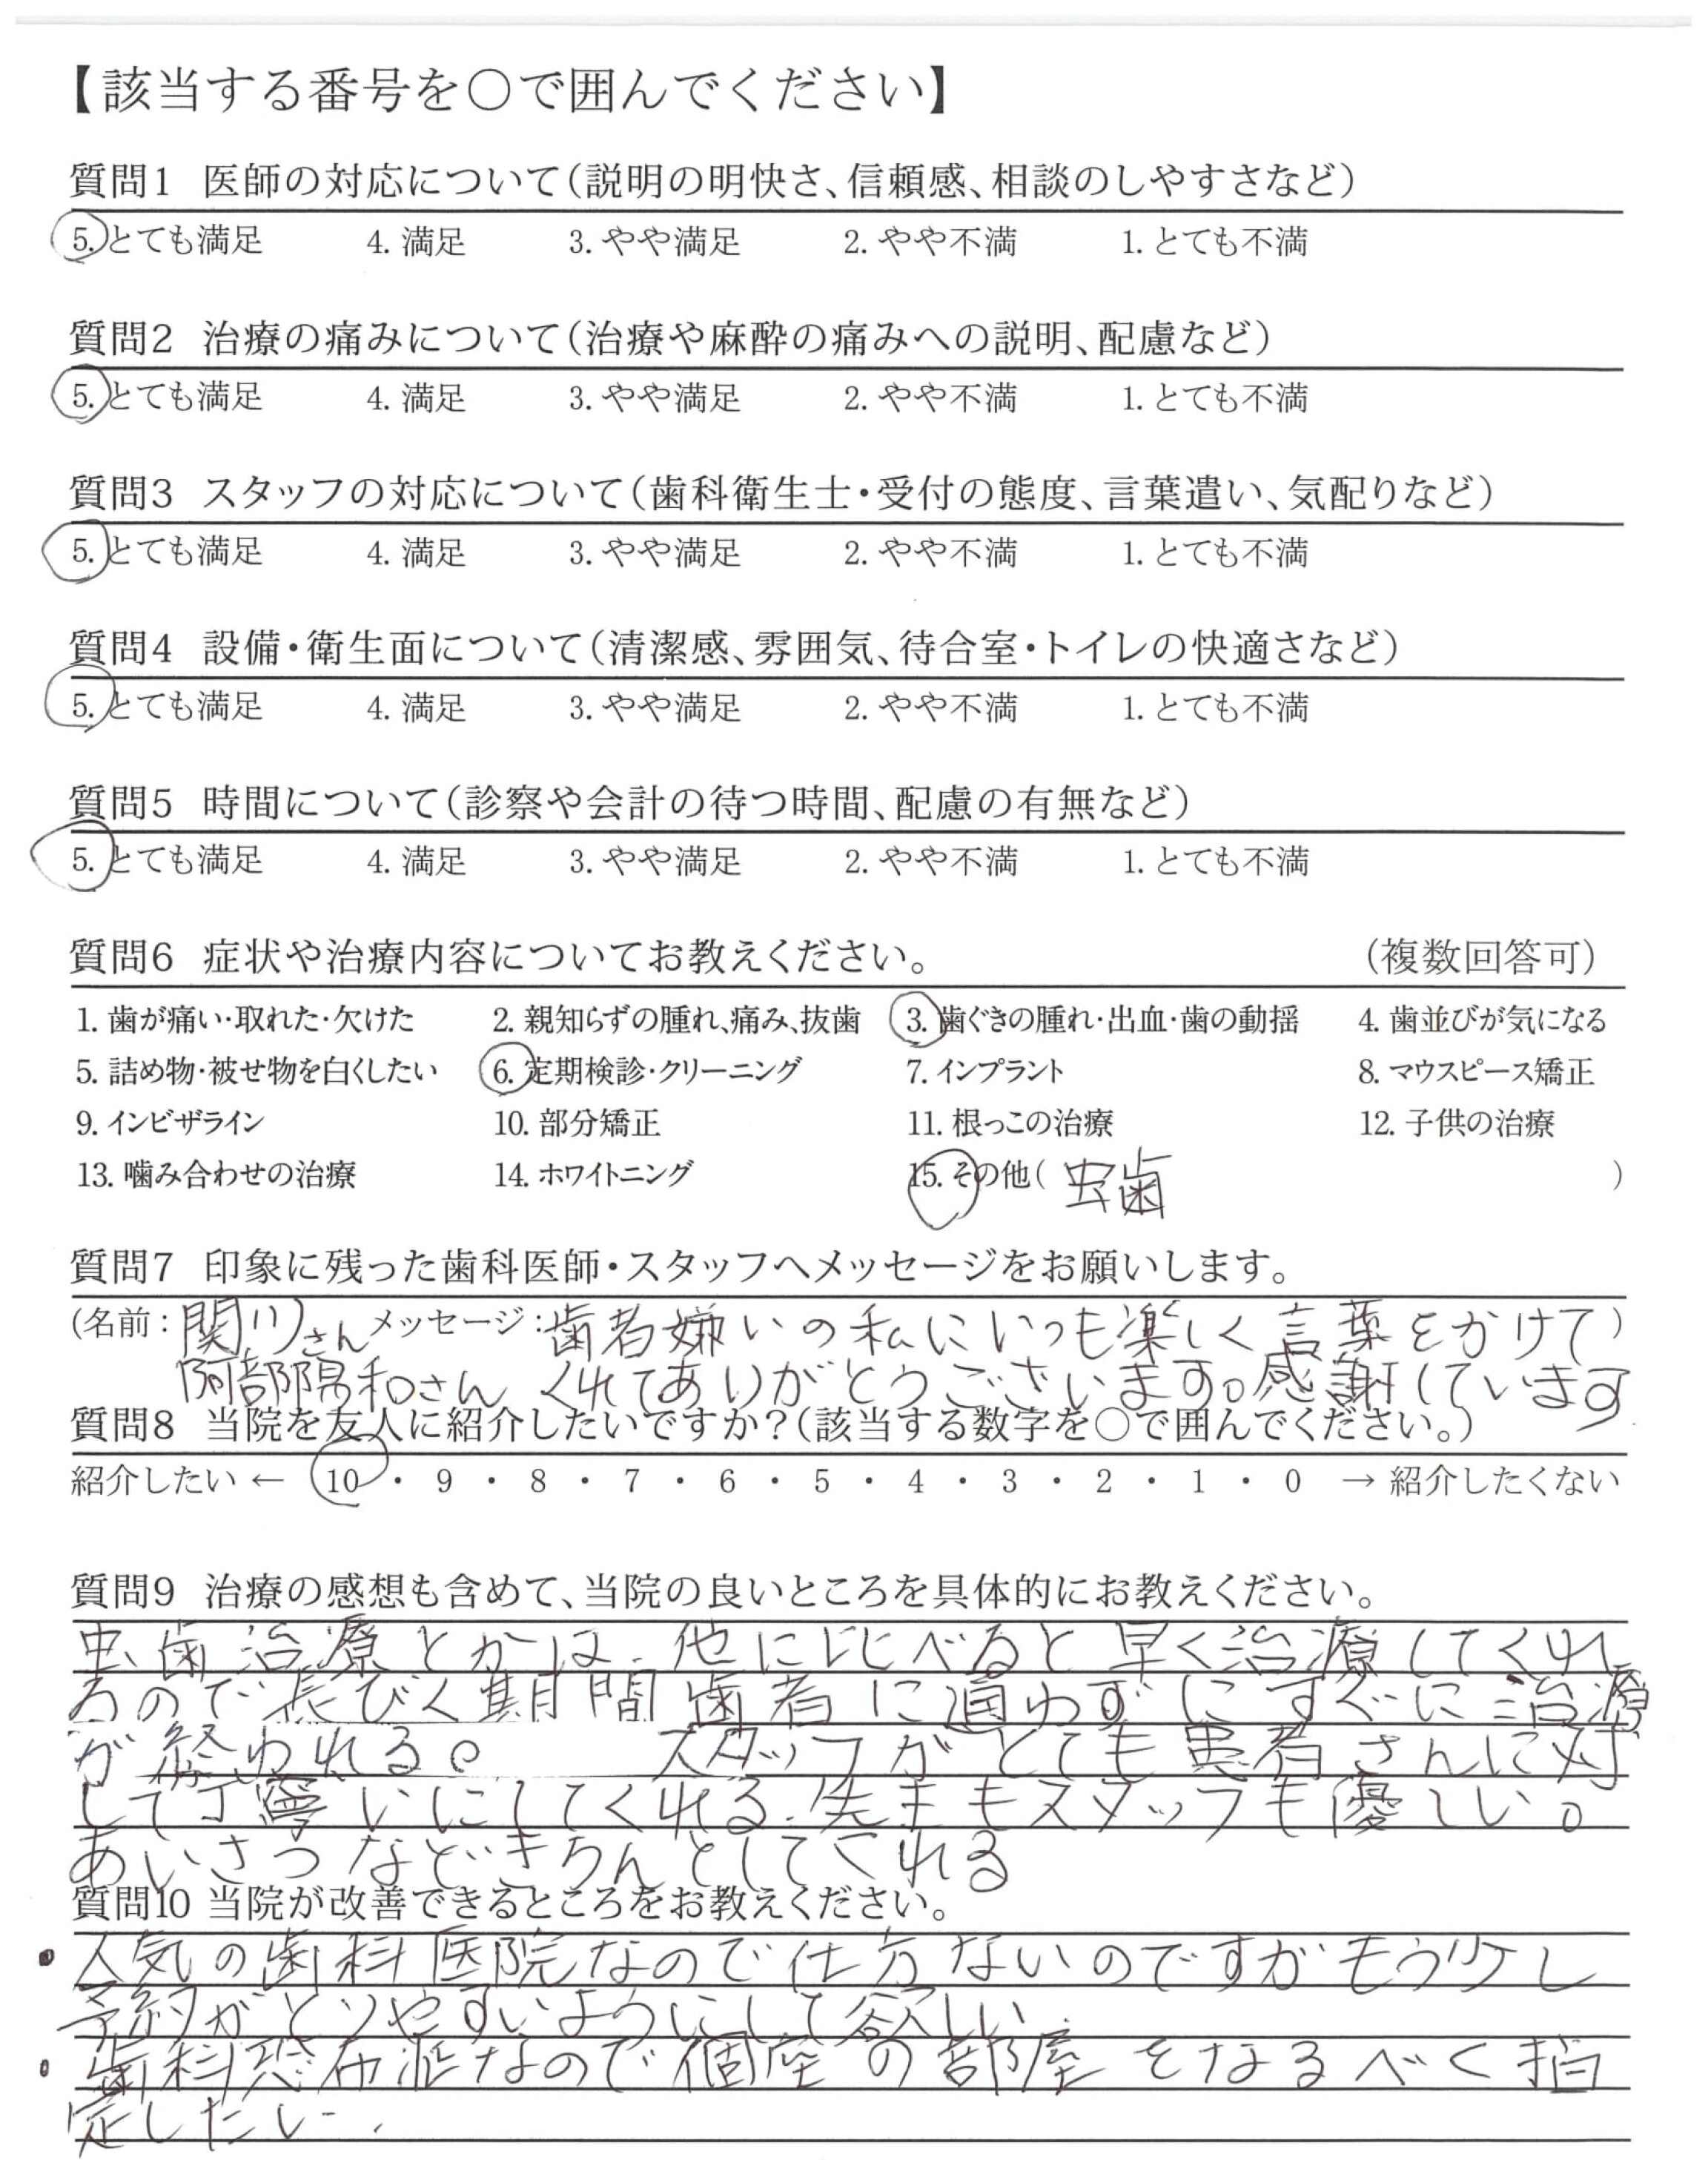 【該当する番号を○で囲んでください】
質問1 医師の対応について(説明の明快さ、信頼感、相談のしやすさなど)
5. とても満足 4. 満足 3. やや満足 2. やや不満 1. とても不満
質問2 治療の痛みについて(治療や麻酔の痛みへの説明、配慮など)
5. とても満足 4. 満足 3. やや満足 2. やや不満 1. とても不満
質問3 スタッフの対応について(歯科衛生士・受付の態度、言葉遣い、気配りなど)
5. とても満足 4. 満足 3. やや満足 2. やや不満 1. とても不満
質問4 設備・衛生面について(清潔感、雰囲気、待合室・トイレの快適さなど)
5. とても満足 4. 満足 3. やや満足 2. やや不満 1. とても不満
質問5 時間について(診察や会計の待つ時間、配慮の有無など)
5. とても満足 4. 満足 3. やや満足 2. やや不満 1. とても不満
質問6 症状や治療内容についてお教えください。 (複数回答可)
1. 歯が痛い・取れた・欠けた 2. 親知らずの腫れ、痛み、抜歯 3. 歯ぐきの腫れ・出血・歯の動揺 4. 歯並びが気になる
5. 詰め物・被せ物を白くしたい 6. 定期検診・クリーニング 7. インプラント 8. マウスピース矯正
9. インビザライン 10. 部分矯正 11. 根っこの治療 12. 子供の治療
13. 噛み合わせの治療 14. ホワイトニング 15. その他( 虫歯 )
質問7 印象に残った歯科医師・スタッフへメッセージをお願いします。
(名前: 関川さん メッセージ: 歯者嫌いの私にいつも楽しく言葉をかけて)
阿部陽和さん くれてありがとうございます。感謝しています
質問8 当院を友人に紹介したいですか?(該当する数字を○で囲んでください。)
紹介したい ← 10 ・ 9 ・ 8 ・ 7 ・ 6 ・ 5 ・ 4 ・ 3 ・ 2 ・ 1 ・ 0 → 紹介したくない
質問9 治療の感想も含めて、当院の良いところを具体的にお教えください。
虫歯治療とかは、他に比べると早く治療してくれ
るので長びく期間歯者に通わずにすぐに治療
が終われる。 スタッフがとても患者さんに対
して丁寧いにしてくれる.先生もスタッフも優しい。
あいさつなどきちんとしてくれる
質問10 当院が改善できるところをお教えください。
・人気の歯科医院なので仕方ないのですがもう少し
予約がとりやすいようにして欲しい
・歯科恐布症なので個座の部屋をなるべく指
定したい.